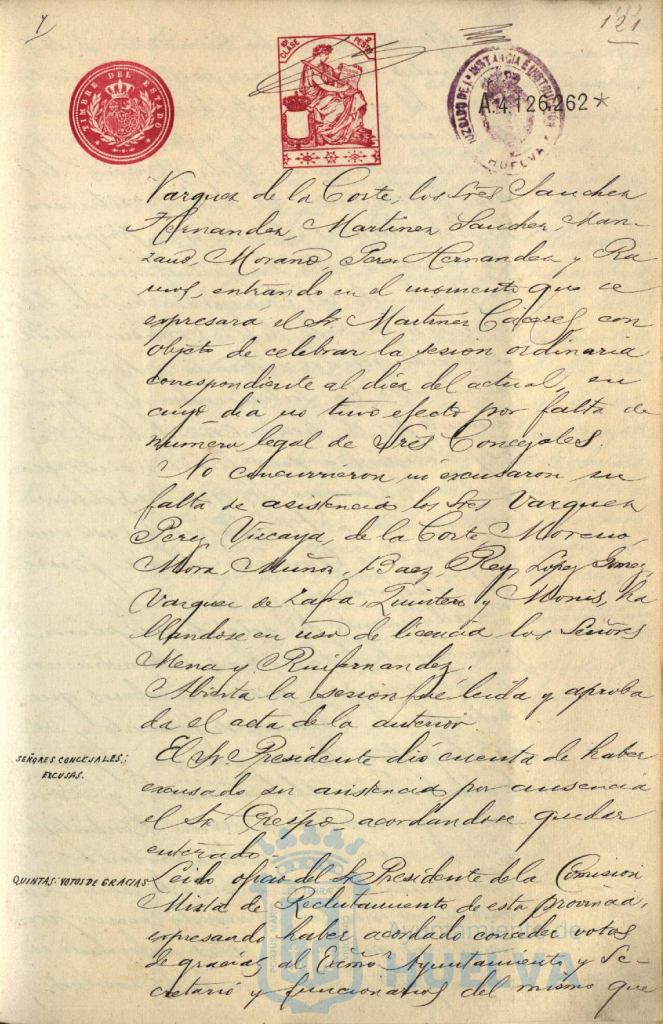 121
TIMBRE DEL ESTADO
10ª CLASE
2 PESETAS
JUZGADO DE 1ª INSTANCIA E INSTRUCCION
HUELVA
A.4.126.262*
Vazquez de la Corte, los Sres Sanchez
Hernandez, Martinez Sanchez, Man-
zano, Morano, Perez Hernandez y Ra
mos, entrando en el momento que se
expresara el Sr Martinez Cáceres con
objeto de celebrar la sesion ordinaria
correspondiente al diez del actual, en
cuyo dia no tuvo efecto por falta de
número legal de Sres Concejales.
No concurrieron ni excusaron su
falta de asistencia los Sres Vazquez
Perez, Vizcaya, de la Corte, Moreno,
Mora, Muñoz, Baez, Rey, Lopez Gomez,
Vazquez de Zafra, Quintero y Monis, ha
llandose en uso de licencia los Señores
Mena y Ruifernandez.
Abierta la sesion fué leida y aproba
da el acta de la anterior
SEÑORES CONCEJALES:
EXCUSAS.
El Sr Presidente dió cuenta de haber
excusado su asistencia por ausencia
el Sr Crespo acordandose quedar
enterado
QUINTAS: VOTOS DE GRACIAS
Leido oficio del Sr Presidente de la Comision
Mista de Reclutamiento de esta provincia,
expresando haber acordado conceder votos
de gracias al Excmo Ayuntamiento y Se-
cretario y funcionarios del mismo que
Ayuntamiento de
HUELVA